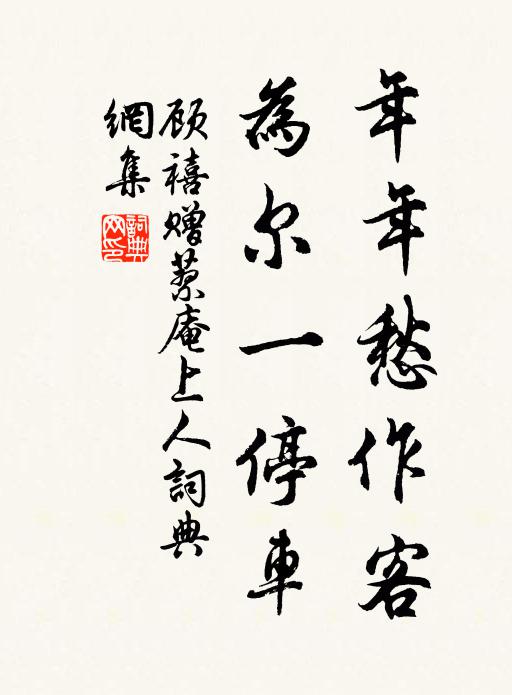 年年愁作客
為尔一停車
顾禧赠蔡庵上人詞典
網集
詞典
网印